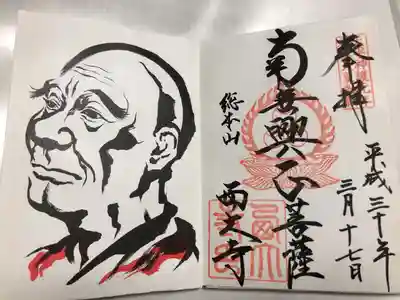 奉拝
平成三十年
三月十七日
南無興正菩薩
総本山
西大寺